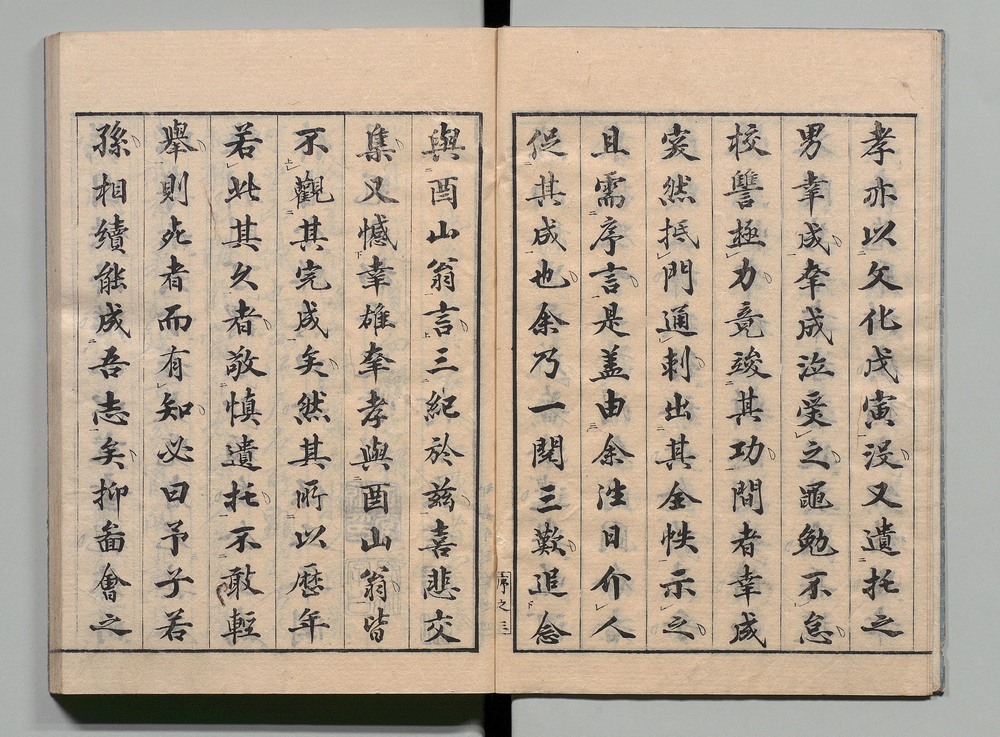 孝亦以文化戊寅没又遺托之
男幸成奉成泣受之黽勉不怠
校讐極力竟竣其功間者幸成
突然抵門通刺出其全帙示之
且需序言是蓋由余注日介人
促其成也余乃一閲三歎追念
與酉山翁言三紀於茲喜悲交
集又憾幸雄奉孝與酉山翁皆
不觀其完成矣然其所以歴年
若此其久者敬慎遺托不敢輕
舉則死者而有知必曰予子若
孫相續能成吾志矣抑畵會之
序之三